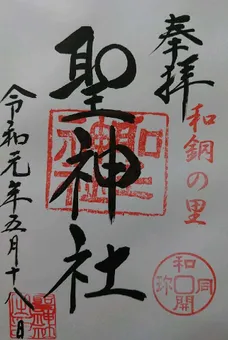 奉拝
和銅の里
聖神社
令和元年五月十八日
和同開珎